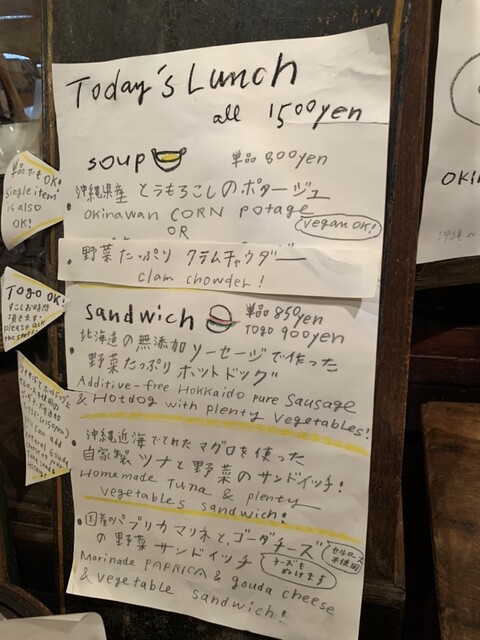 Today's Lunch
all 1500yen
soup 単品 800yen
・沖縄県産 とうもろこしのポタージュ
Okinawan CORN Potage
vegan OK!
OR
・野菜たっぷり クラムチャウダー
clam chowder!
Sandwich 単品 850yen
TOGO 900yen
・北海道の無添加 ソーセージで作った
野菜たっぷり ホットドッグ
Additive-free Hokkaido Pure Sausage
& Hotdog with plenty Vegetables!
・沖縄近海でとれた マグロを使った
自家製 ツナと野菜のサンドイッチ!
Homemade Tuna & plenty
vegetables sandwich!
・国産パプリカマリネと、ゴーダチーズ
セルロース
不使用
の野菜 サンドイッチ
チーズも
ぬけます
Marinade PAPRICA & gouda cheese
& vegetable sandwich!
単品でもOK!
single item
is also
OK!
TOGO OK!
すこしお時間
頂きます!
please ask
the staff!
You can add
natural Gouda
cheese
OKI
沖縄